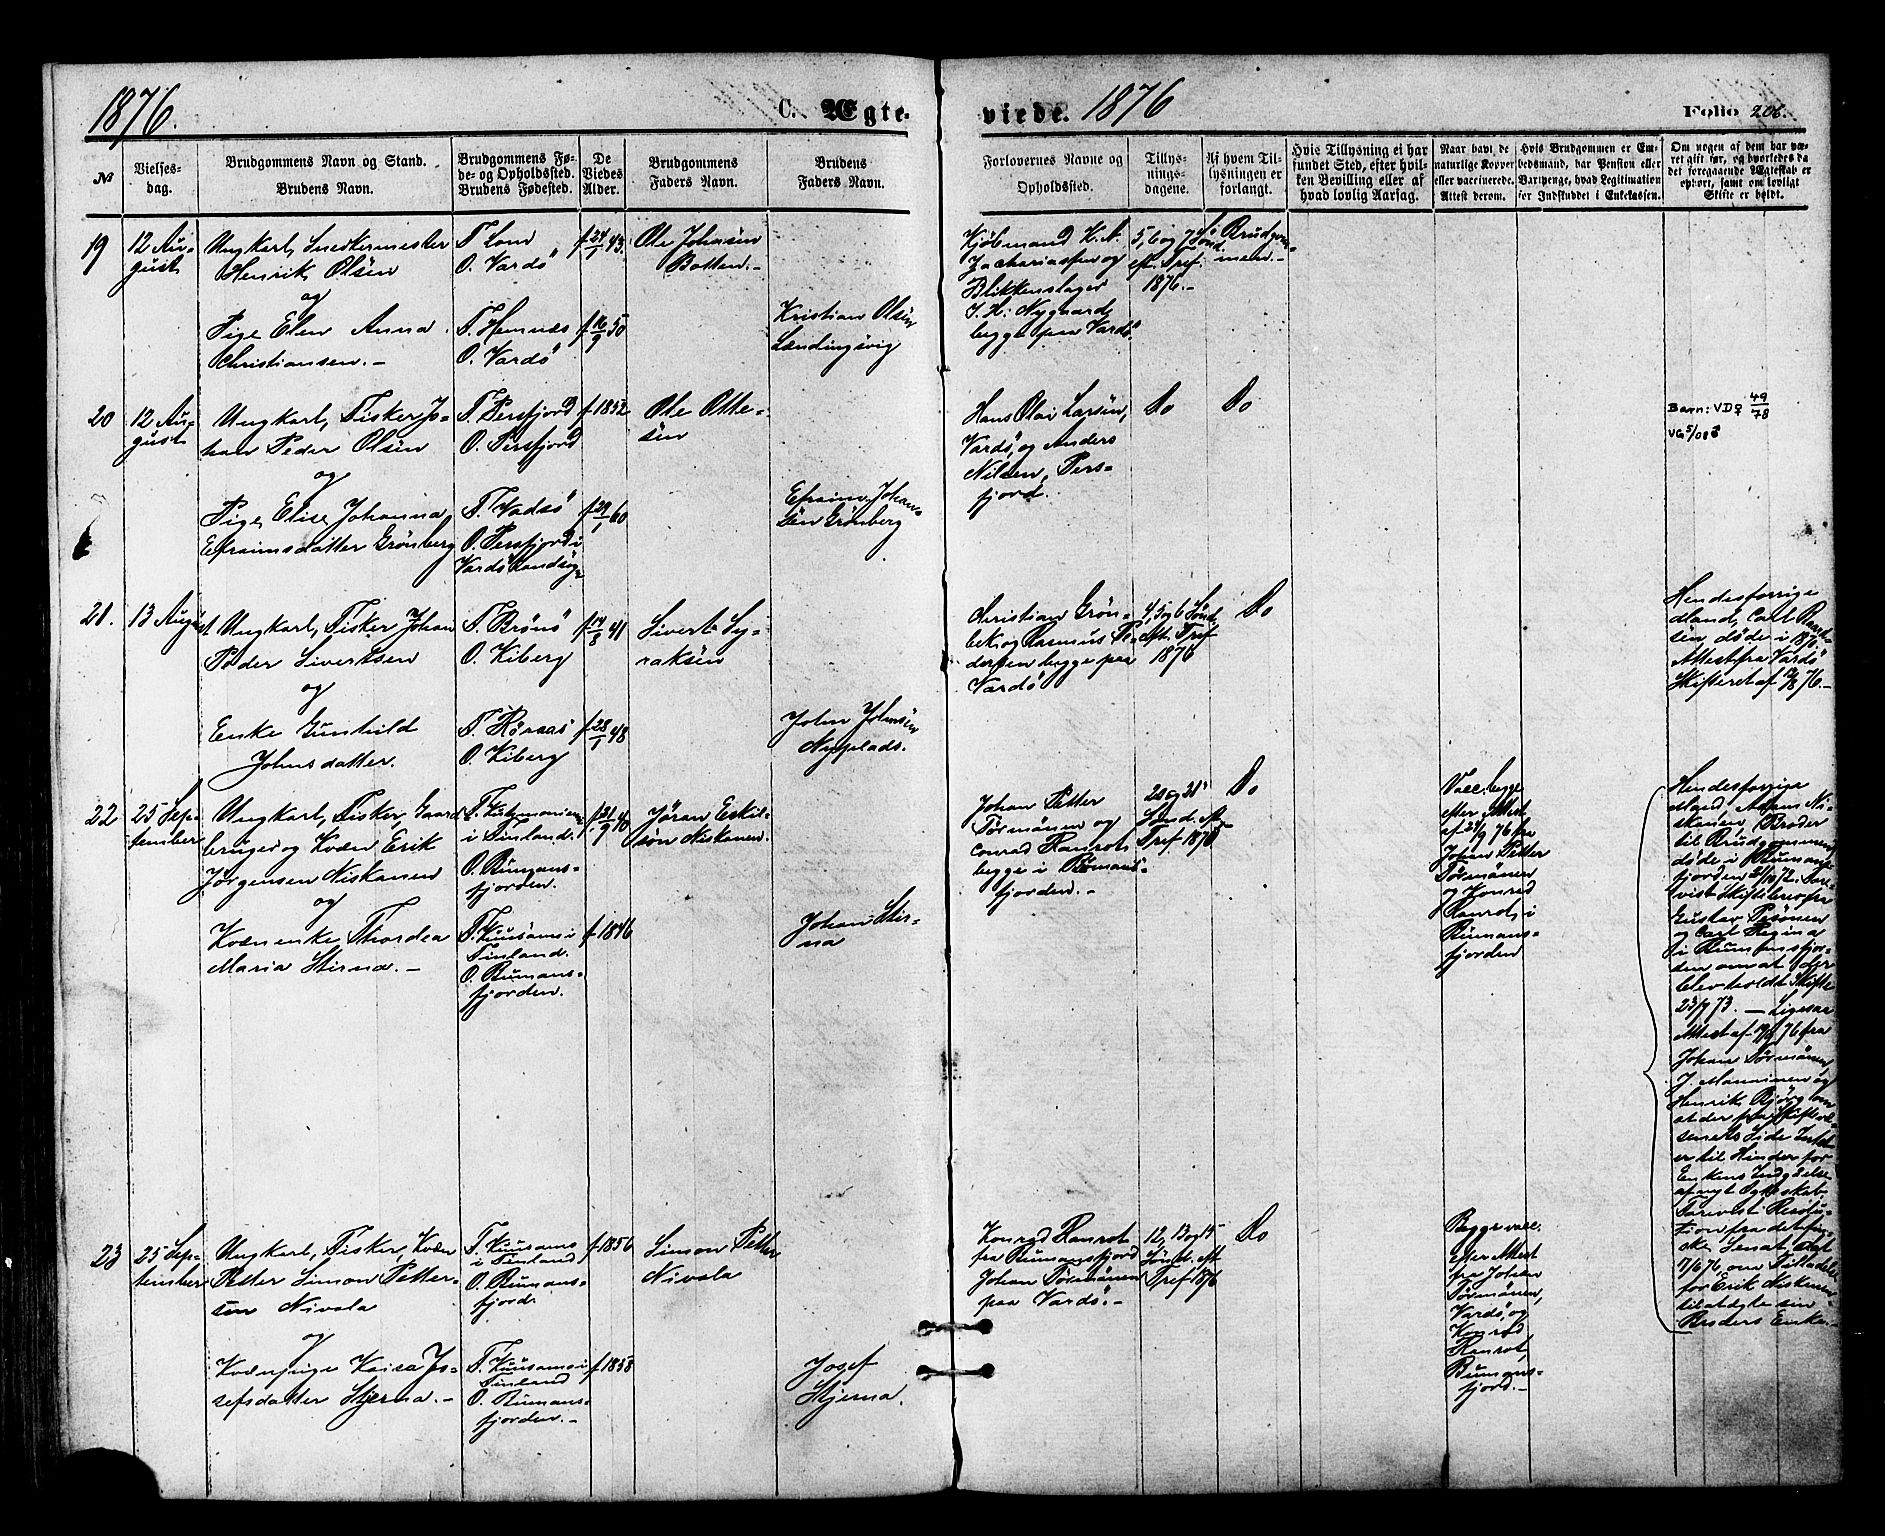 1876.
C. Ægte-
viede. 1876
Folio 206.
№
Vielses-
dag.
Brudgommens Navn og Stand.
Brudens Navn.
Brudgommens Fø-
de- og Opholdssted.
Brudens Fødested.
De
Viedes
Alder.
Brudgommens
Faders Navn.
Brudens
Faders Navn.
Forlovernes Navne og
Opholdssted.
Tillys-
nings-
dagene.
Af hvem Til-
lysningen er
forlangt.
Hvis Tillysning ei har
fundet Sted, efter hvil-
ken Bevilling eller af
hvad lovlig Aarsag.
Naar havt de
naturlige Kopper
eller vaccinerede.
Attest derom.
Hvis Brudgommen er Em-
bedsmand, har Pension eller
Vartpenge, hvad Legitimation
for Indskuddet i Enkekassen.
Om nogen af dem har væ-
ret gift før, og hvorledes da
det foregaaende Ægteskab er
ophørt, samt om lovligt
Skifte er holdt.
19
12 Au-
gust
Ungkarl, Snedkermester
Henrik Olsen
og
Pige Elen Anna
Christiansen.-
F. Lom
O. Vardö
F. Hemnæs
O. Vardö
f. 24/1 43.
f. 16/9 50
Ole Johnsen
Botten.-
Kristian Olsen
Lændingsvig
Kjöbmand K. A.
Zachariassen og
Blikkenslager
J. K. Nygaard,
begge paa Vardö.
5, 6 og 7 Sönd.
eft. Tref.
1876.-
Brudgom-
men.-
20
12 Au-
gust
Ungkarl, Fisker Jo-
han Peder Olsen
og
Pige, Elise Johanna
Efraimsdatter Grönberg
F. Persfjord
O. Persfjord
F. Vadsö
O. Persfjord i
Vardö Landsogn
f. 1852
f. 29/1 60
Ole Otte-
sen
Efraim Johan-
sen Grönberg
Hans Olai Larsen,
Vardö, og Anders
Nilsen, Pers-
fjord.
Do
Do
Barn: VD♀ 49/78
VG 5/08♂
21.
13 August
Ungkarl, Fisker Johan
Peder Sivertsen
og
Enke Gunhild
Johnsdatter.
F. Brönö
O. Kiberg
F. Röraas
O. Kiberg
f. 14/8 41
f. 28/1 48
Sivert Sy-
raksen
John Johnsen
Nyplads.
Christian Grön-
bek og Rasmus Pe-
dersen begge paa
Vardö
4, 5 og 6 Sönd.
eft. Tref
1876
Do
Hendes forrige
Mand, Carl
döde i
Attest fra Vardö
Skifteret af 12/8 76.-
22
25 Sep-
tember
Ungkarl, Fisker, Gaard-
bruger og Kvæn Erik
Jörgensen Niskanen
og
Kvænenke Thordea
Maria Stirna.-
i Finland.
O. Bumans-
fjorden.
F. Kuusamo i
Finland.
O. Bumans-
fjorden.
f. 21/9 40
f. 1846
Jöran Eskil-
son Niskanen.
Johan Stir-
na
Johan Petter
Törmänen og
Conrad Ranrot
begge i Bumans-
fjorden.-
20 og 21
Sönd. eft.
Tref 1876
Do
Vacc. begge
efter Attest
af 24/9 76 fra
Johan Petter
Törmänen
og Konrad
Ranrot, i
Bumans-
fjorden
Hendes forrige
Mand, Adam Ni-
skanen, Broder
til Brudgommen,
döde i Bumans-
fjorden
Gustav Pesönen
og Carl Regina
i Bumansfjor-
den om at der
blev holdt Skifte
23/9 73. - Ligesaa
Attest af 76 fra
Johan Törmänen,
J. Manninen og
Henrik Björg om
at der fra Skiftevæ-
senets Side Intet
er til Hinder for
Enkens Indgaaelse
af nyt Ægteskab.
Forevist Resolu-
tion fra det fin-
ske Senat dat
76, om Tilladelse
for Erik Niskanen
til at ægte sin
Broders Enke.-
23
25 Sep-
tember
Ungkarl, Fisker, Kvæn
Petter Simon Petter-
sen Nivala
og
Kvænpige Kaisa Jo-
sefsdatter Stjerna.-
F. Kuusamo
i Finland
O. Bumans-
fjord.
F. Kuusamo i
Finland
O. Bumans-
fjorden.-
f. 1856
f. 1858
Simon Petter
Nivala
Josef
Stjerna.
Konrad Ranrot
fra Bumansfjord
Johan Törmänen
paa Vardö.-
12, 13 og 15
Sönd. eft.
Tref 1876
Do
Begge vacc.
efter Attest
fra Johan
Törmänen,
Vardö, og
Konrad
Ranrot,
Bumans-
fjord.-